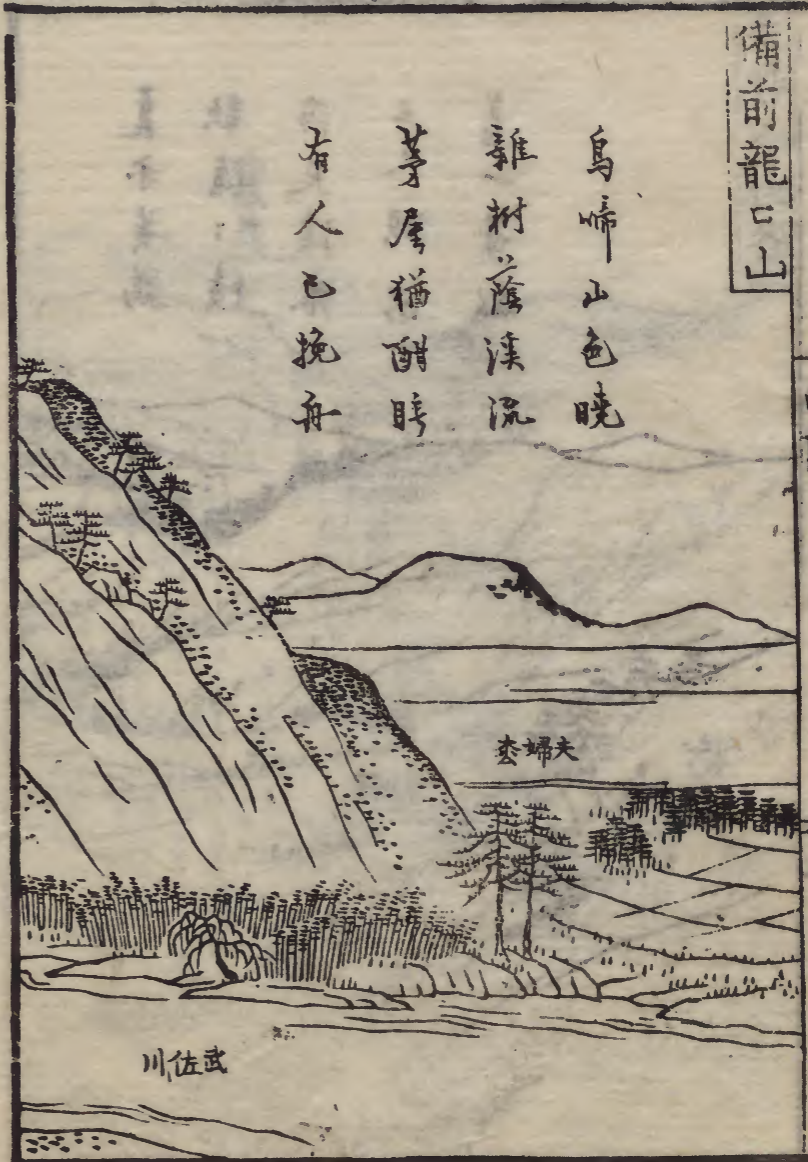 備前龍口山
鳥啼山色曉
雜樹蔭溪流
茅屋猶酣睡
有人已挽舟
夫婦枩
武佐川